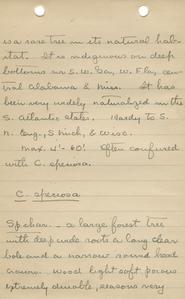 is a rare tree in its natural hab-
itat. It is indigenous on deep
bottoms in S.W. Ga, W. Fla, cen-
tral Alabama & Miss. It has
been very widely naturalized in the
S. Atlantic states. Hardy to S.
n. Eng., S. Mich, & Wisc.
max. 4'- 60'. Often confused
with C. speciosa.
C. speciosa
Sp. char. - a large forest tree
with deep wide roots a long clear
bole and a narrow round head
crown. Wood light soft porous
extremely durable, seasons very